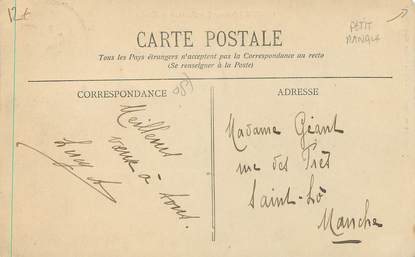 12€
PETIT
MANQUE
CARTE POSTALE
Tous les Pays étrangers n'acceptent pas la Correspondance au recto
(Se renseigner à la Poste)
CORRESPONDANCE
Meilleurs
vœux à
tous.
Lucy
ADRESSE
Madame Géant
rue des Prés
Saint-Lô
Manche